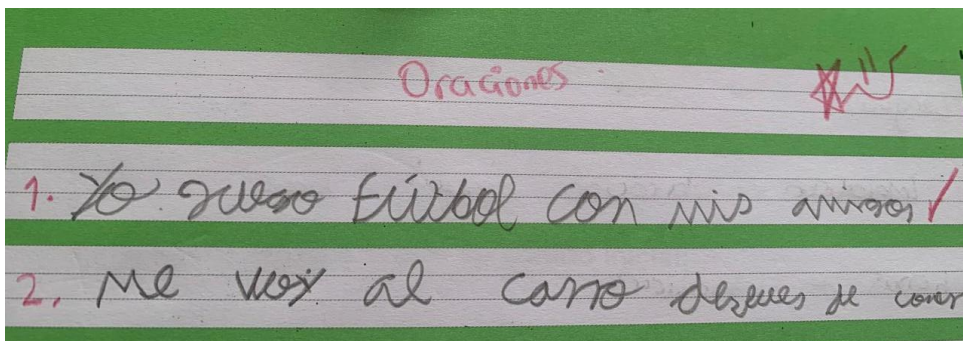 Oraciones
1. Yo juego fútbol con mis amigos
2. Me voy al carro despues de comer